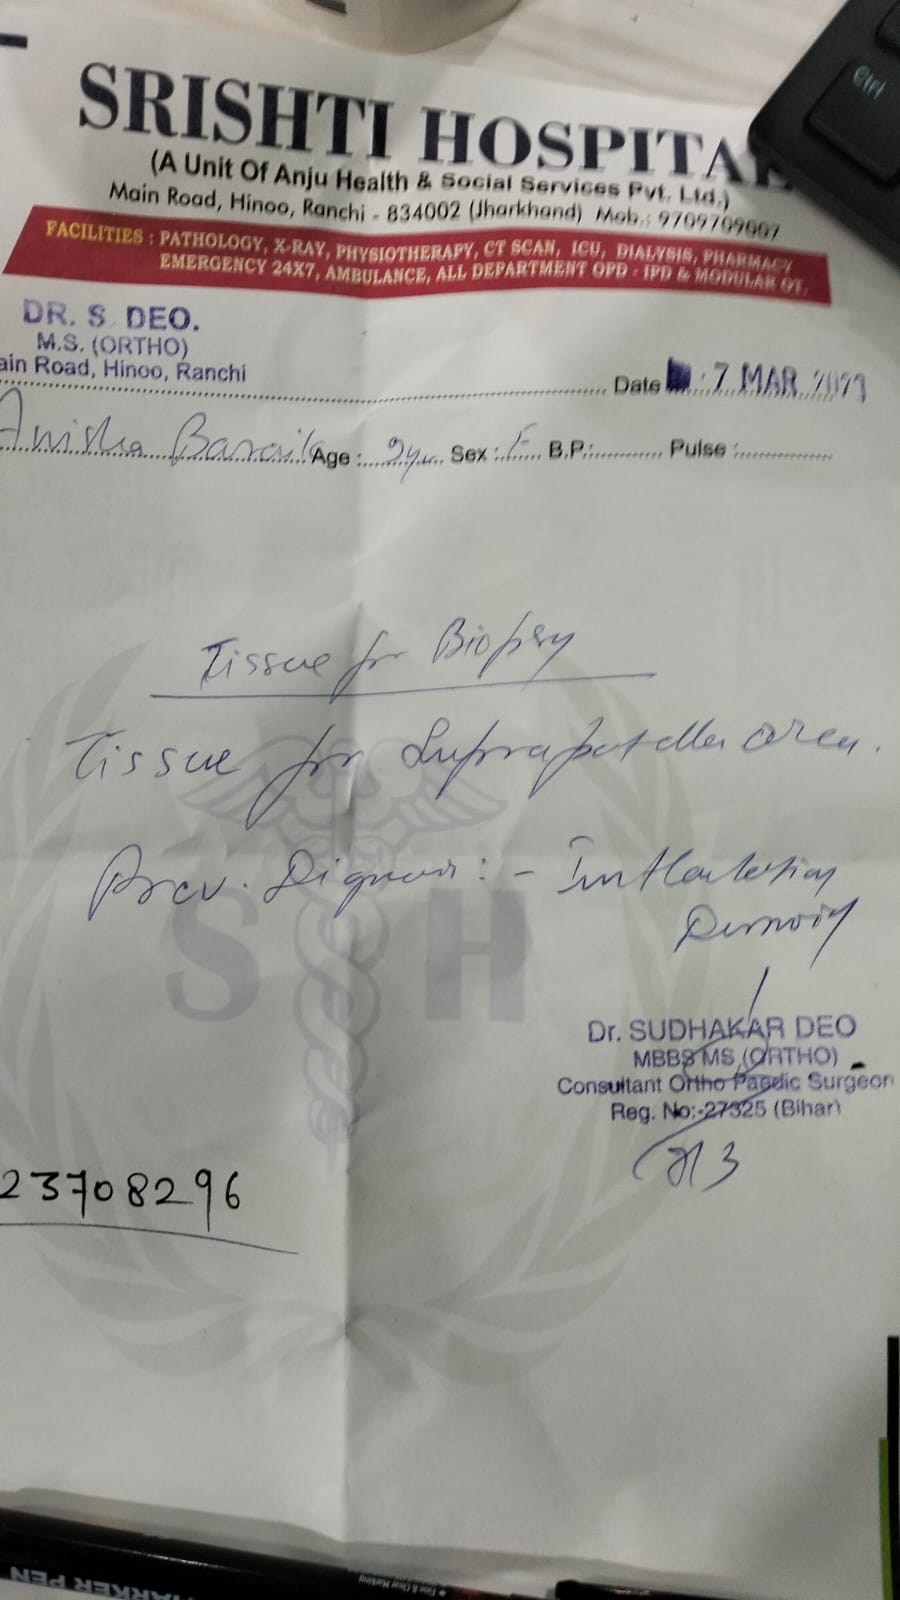 SRISHTI HOSPITAL
(A Unit Of Anju Health & Social Services Pvt. Ltd.)
Main Road, Hinoo, Ranchi - 834002 (Jharkhand) Mob.: 9709709007
FACILITIES : PATHOLOGY, X-RAY, PHYSIOTHERAPY, CT SCAN, ICU, DIALYSIS, PHARMACY
EMERGENCY 24X7, AMBULANCE, ALL DEPARTMENT OPD - IPD & MODULAR OT.
DR. S. DEO.
M.S. (ORTHO)
ain Road, Hinoo, Ranchi
Date : 7 MAR
Anisha Age : Sex : F B.P.: Pulse :
Tissue for Biopsy
Tissue for Suprapateller area.
Prov. :-
Dr. SUDHAKAR DEO
MBBS MS (ORTHO)
Consultant Ortho Paedic Surgeon
Reg. No:-27325 (Bihar)
S H
23708296
ARKER PEN